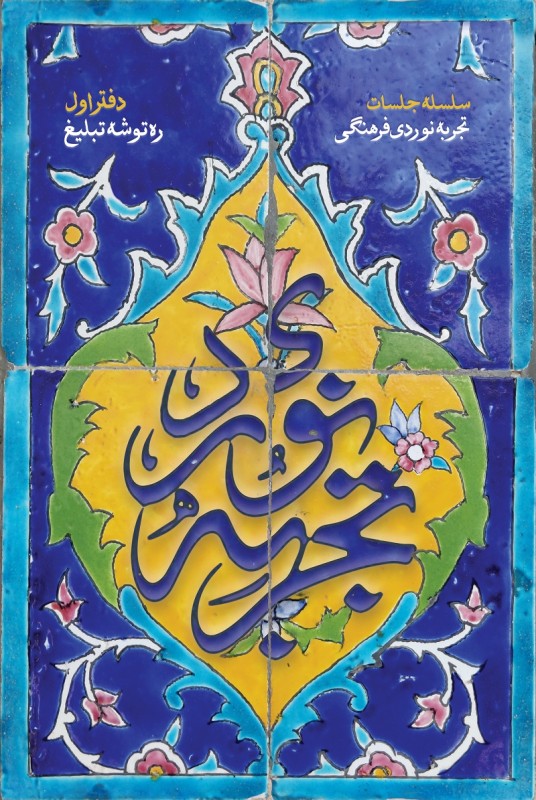 سلسله جلسات
تجربه نوردی فرهنگی
دفتر اول
ره توشه تبلیغ
تجربه نوردی